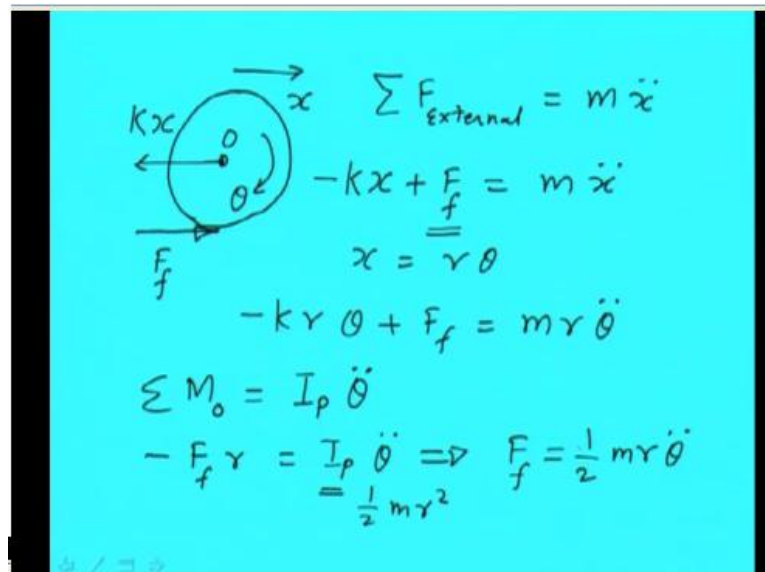 x
Kx
O
θ
F_f
Σ F_External = m ẍ
-kx + F_f = m ẍ
x = r θ
-k r θ + F_f = m r θ̈
Σ M_o = I_p θ̈
- F_f r = I_p θ̈ ⇒ F_f = 1/2 m r θ̈
= 1/2 m r²